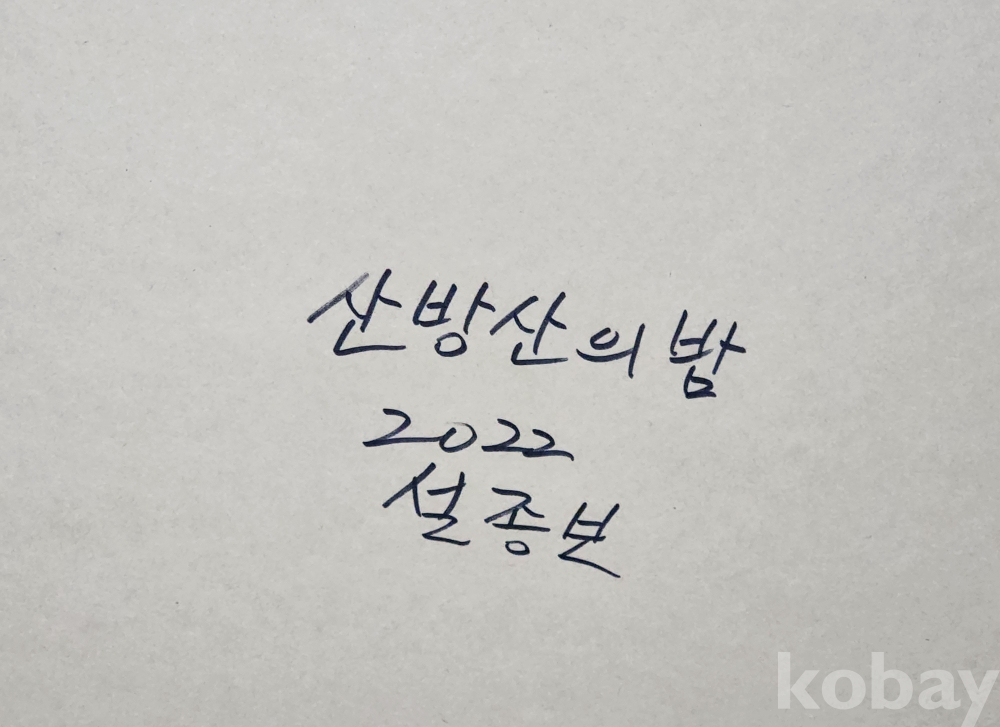 산방산의 밤
2022
설종보
kobay